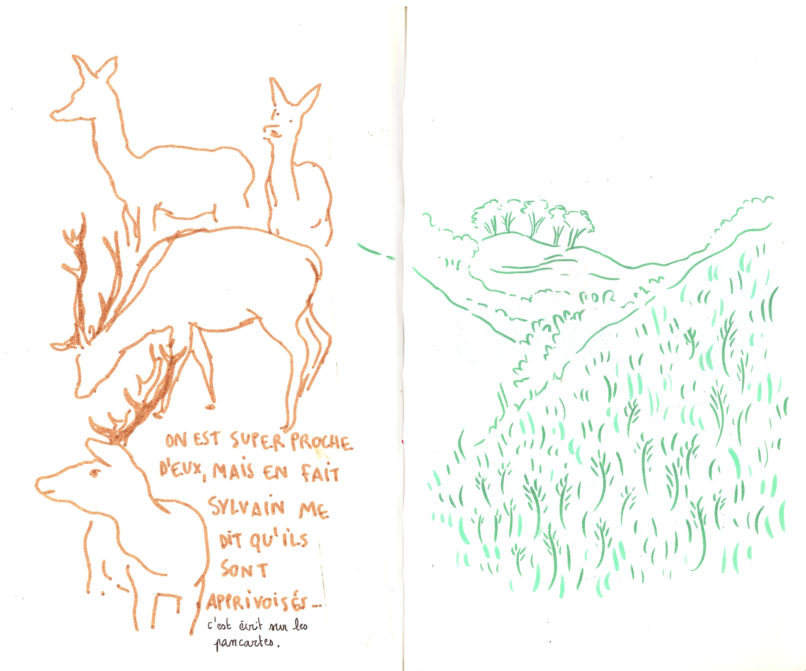 ON EST SUPER PROCHE
D'EUX, MAIS EN FAIT
SYLVAIN ME
DIT QU'ILS
SONT
APPRIVOISÉS...
c'est écrit sur les
pancartes.